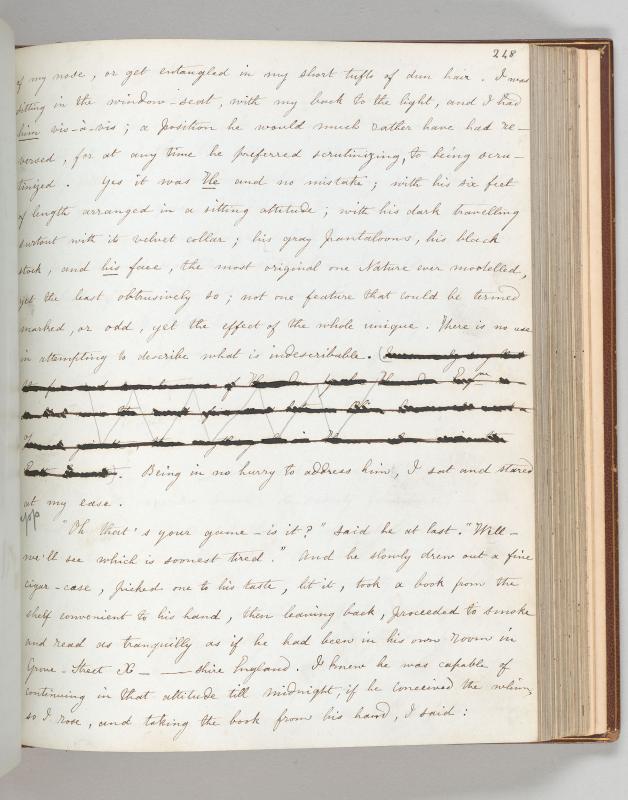 248
of my nose, or get entangled in my short tufts of dun hair. I was
sitting in the window-seat, with my back to the light, and I had
him vis-à-vis; a position he would much rather have had re-
versed, for at any time he preferred scrutinizing, to being scru-
tinized. Yes it was He and no mistake; with his six feet
of length arranged in a sitting attitude; with his dark travelling
surtout with its velvet collar; his gray pantaloons, his black
stock, and his face, the most original one Nature ever modelled,
yet the least obtrusively so; not one feature that could be termed
marked, or odd, yet the effect of the whole unique. There is no use
in attempting to describe what is indescribable. (
of
). Being in no hurry to address him, I sat and stared
at my ease.
"Oh that's your game – is it?" said he at last. "Well –
we'll see which is soonest tired." And he slowly drew out a fine
cigar-case, picked one to his taste, lit it, took a book from the
shelf convenient to his hand, then leaning back, proceeded to smoke
and read as tranquilly as if he had been in his own room in
Grove-Street X– ––shire England. I knew he was capable of
continuing in that attitude till midnight, if he conceived the whim,
so I rose, and taking the book from his hand, I said: